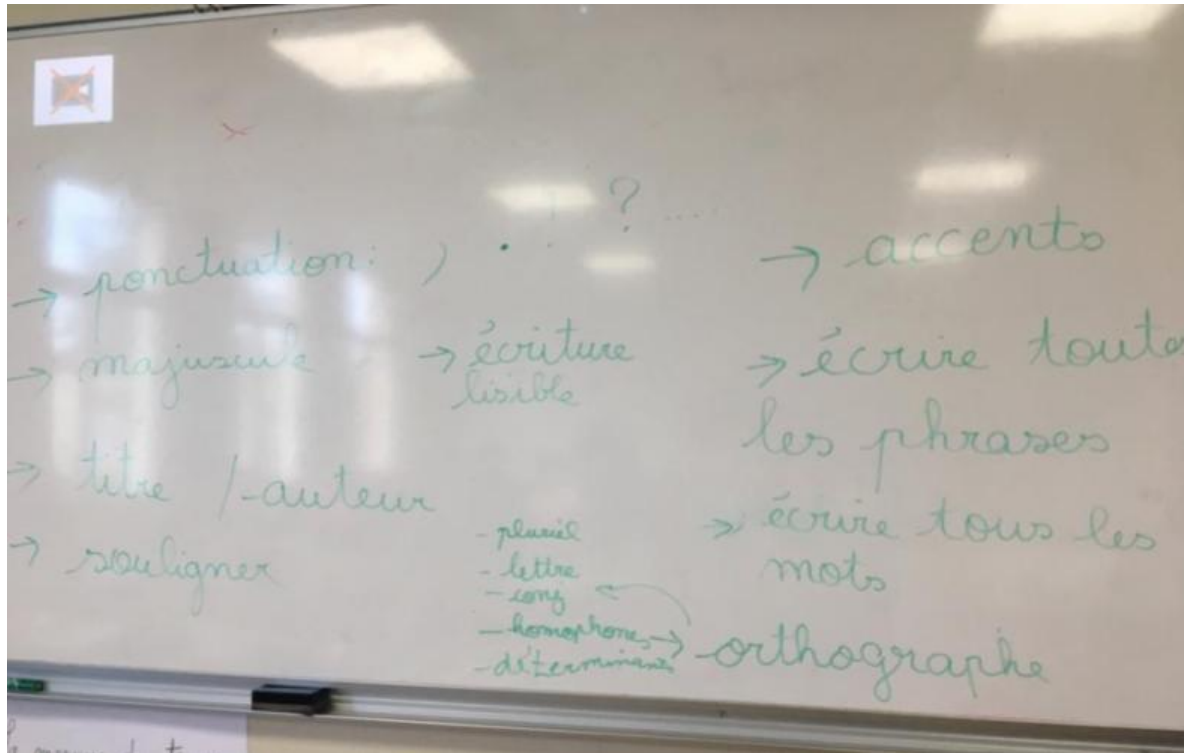 → ponctuation : , . ? ....
→ majuscule
→ titre / auteur
→ souligner
→ écriture
lisible
- pluriel
- lettre
- conj
- homophones
- déterminants
→ accents
→ écrire toutes
les phrases
→ écrire tous les
mots
→ orthographe